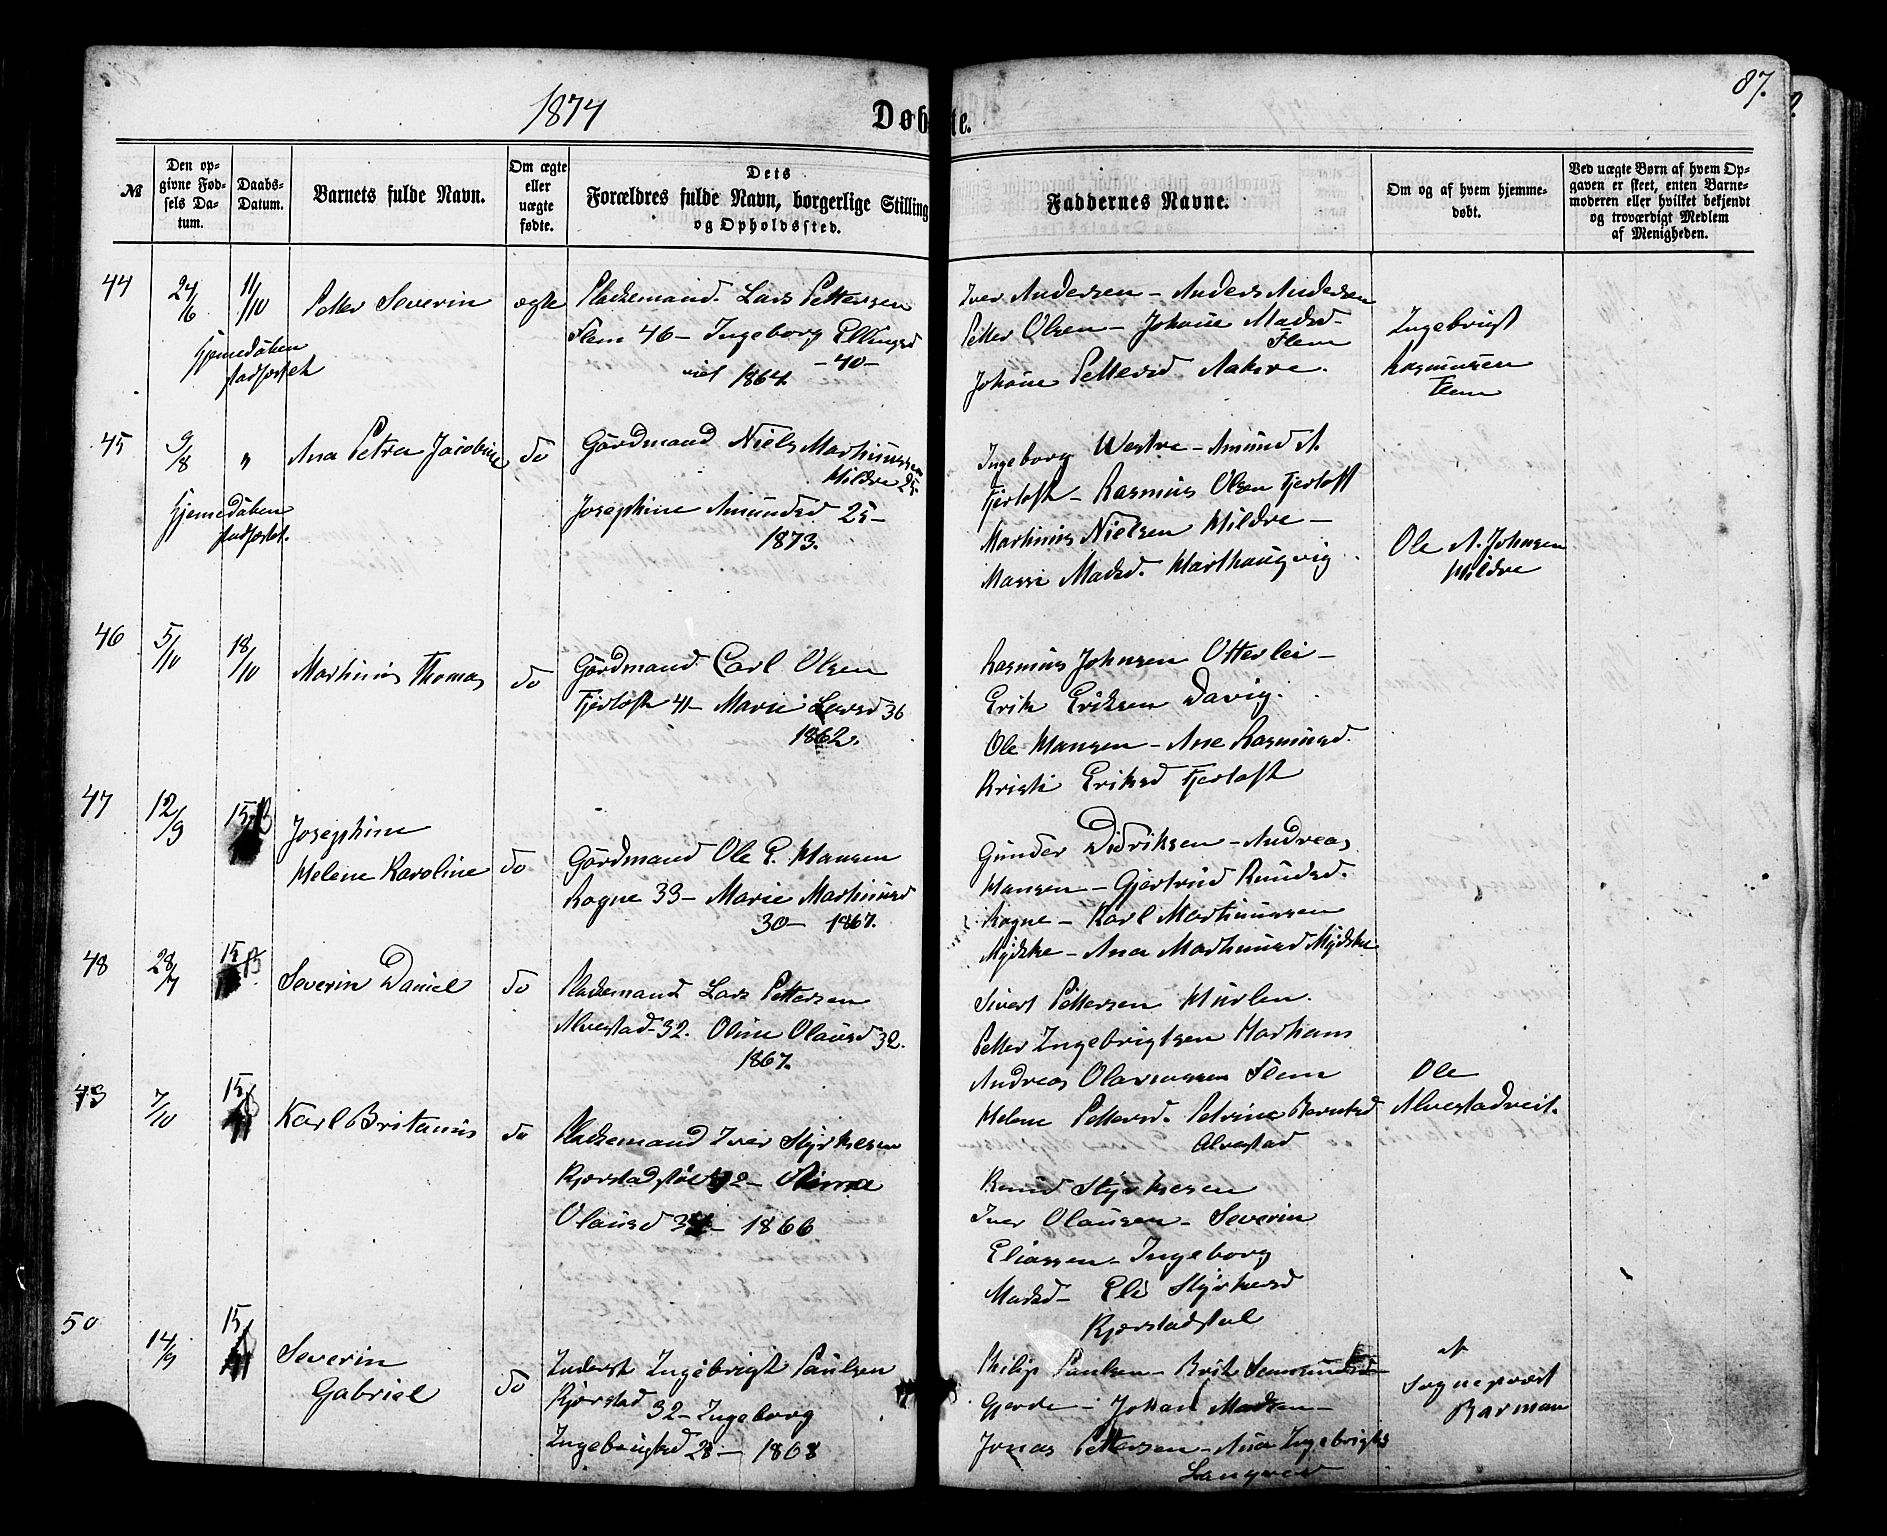 87.
1874
Døbte.
№
Den opgivne Fødsels Datum.
Daabs-Datum.
Barnets fulde Navn.
Om ægte eller uægte fødte.
Dets Forældres fulde Navn, borgerlige Stilling og Opholdssted.
Faddernes Navne.
Om og af hvem hjemmedøbt.
Ved uægte Børn af hvem Opgaven er skeet, enten Barnemoderen eller hvilket bekjendt og troværdigt Medlem af Menigheden.
44
24/6
11/10
Petter Severin
ægte
Pladsemand. Lars Pettersen
Flem 46 - Ingeborg Ellingsd
-40-
viet 1864.
Hjemedøben
stadfæstet
Iver Andersen - Anders Andersen
Petter Olsen - Johane Madsd-
Flem
Johane Pettersd Aakre.
Ingebrigt
Rasmussen
Flem
45
9/8
"
Ana Petra Jacobine
do
Gårdmand Niels Marthinussen
Hildre 25.
Josephine Amundsd 25-
1873.
Hjemedøben
stadfæstet.
Ingeborg Westre - Amund A.
Fjertoft - Rasmus Olsen Fjertoft
Marthinus Nielsen Hildre -
Madsd. Harthaugvig
Ole A. Johnsen
Hildre
46
5/10
18/10
Marthinus Thomas
do
Gårdmand Carl Olsen
Fjertoft 41 - Marie Larsd 36
1862.
Rasmus Johnsen Otterlei -
Erik Eriksen Davig.
Ole Hansen - Ane Rasmusd.
Eriksd Fjertoft
47
12/9
15/
Josephine
Helene Karoline
do
Gårdmand Ole P. Hansen
Rogne 33 - Marie Marthinusd
30 - 1867.
Gunder Didriksen - Andreas
Hansen - Gjertrud Knudsd.
Rogne - Karl Marthinussen
Mydske - Ana Marthinusd Mydske
48
28/7
15/
Severin Daniel
do
Pladsemand Lars Pettersen
Alvestad - 32. Oline Olausd 32.
1867.
Sivert Pettersen Hurlen.
Petter Ingebrigtsen Harhams
Andreas Flem
Helene Pettersd. Petrine Berntsd
Alvestad
Ole
Alvestadveit.
49
7/10
15/
Karl Britanus
do
Pladsemand Iver Styrkesen
Kjærstad
Olausd - 1866
Knud Styrkesen
Iver Olausen - Severin
Eliassen - Ingeborg
Madsd - Eli Styrkesd
50
14/9
15/
Severin
Gabriel
do
Inderst Ingebrigt Paulsen
Kjærstad
32 - Ingeborg
Ingebrigtsd 28 - 1868
Philip Paulsen - Brit
Gjerde - Johan Madsen -
Jonas Pettersen - Ana Ingebrigts
af
Sogneprest
Barman